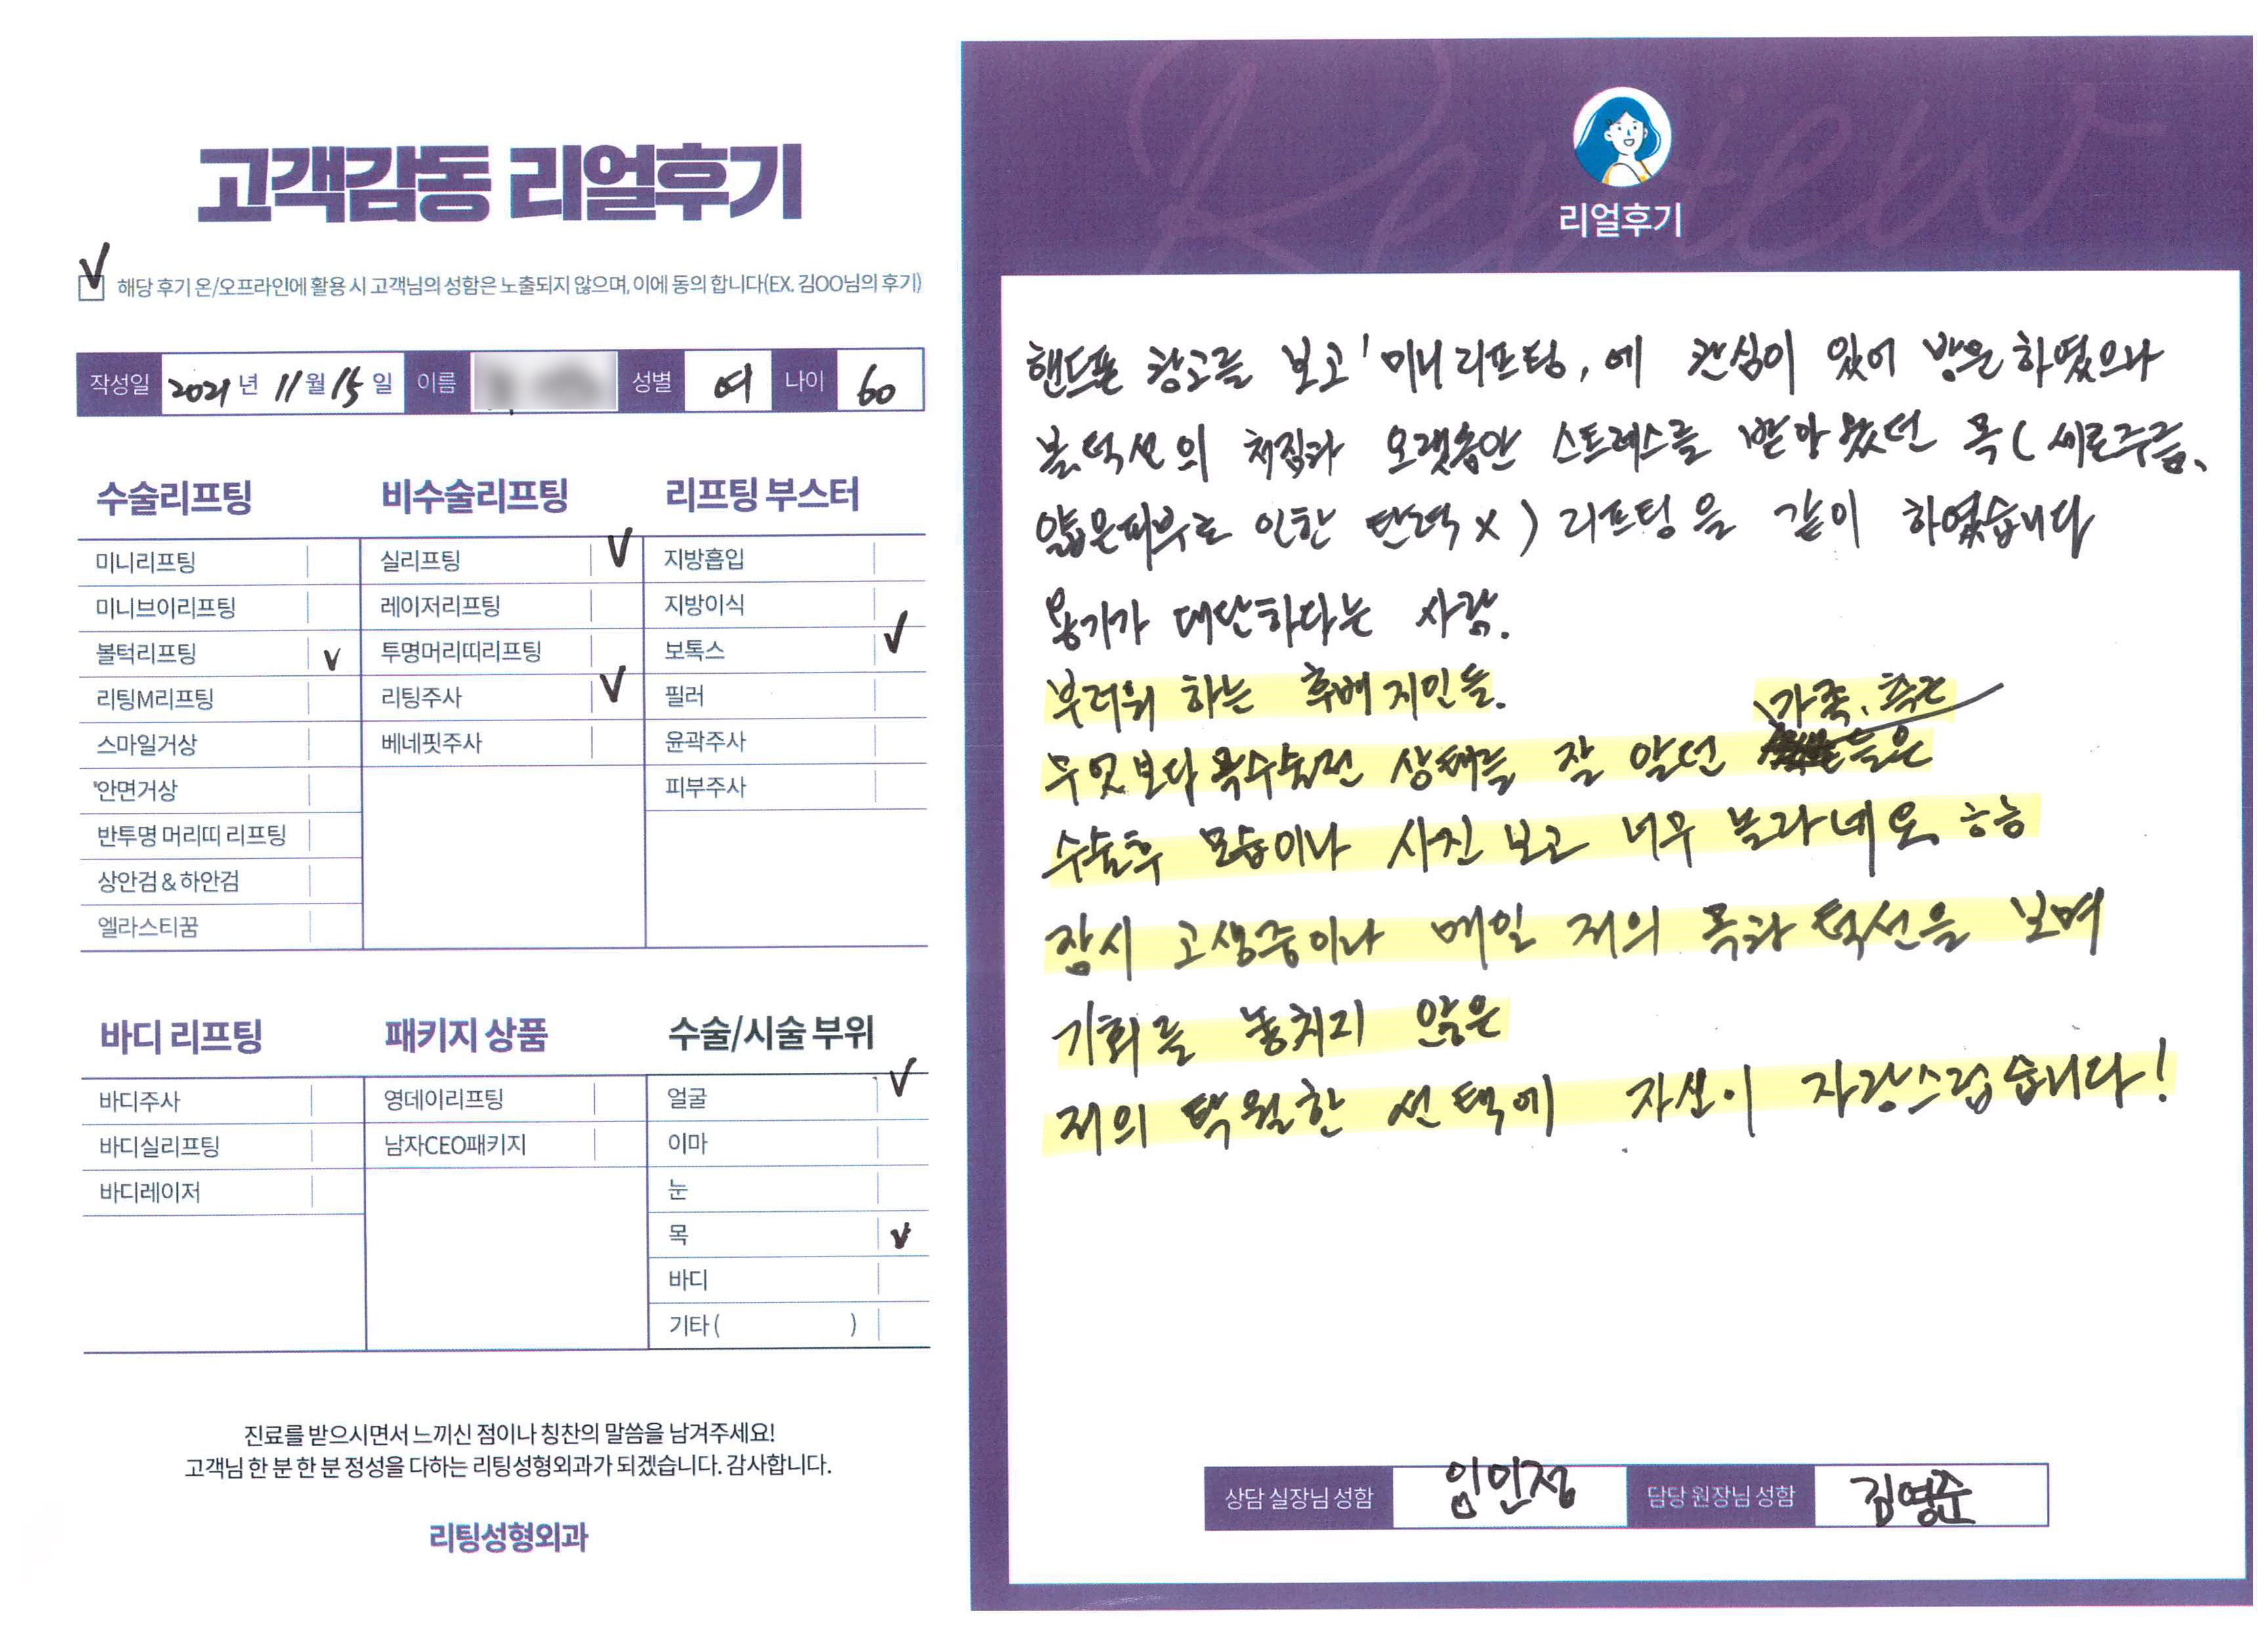 고객감동 리얼후기
해당 후기 온/오프라인에 활용 시 고객님의 성함은 노출되지 않으며, 이에 동의 합니다(EX. 김OO님의 후기)
작성일 2021 년 11 월 15 일 이름 성별 여 나이 60
수술리프팅
미니리프팅
미니브이리프팅
볼턱리프팅 V
리팅M리프팅
스마일거상
안면거상
반투명 머리띠 리프팅
상안검 & 하안검
엘라스티꿈
비수술리프팅
실리프팅 V
레이저리프팅
투명머리띠리프팅
리팅주사 V
베네핏주사
리프팅 부스터
지방흡입
지방이식
보톡스 V
필러
윤곽주사
피부주사
바디 리프팅
바디주사
바디실리프팅
바디레이저
패키지 상품
영데이리프팅
남자CEO패키지
수술/시술 부위
얼굴 V
이마
눈
목 V
바디
기타 ( )
진료를 받으시면서 느끼신 점이나 칭찬의 말씀을 남겨주세요!
고객님 한 분 한 분 정성을 다하는 리팅성형외과가 되겠습니다. 감사합니다.
리팅성형외과
Review
리얼후기
핸드폰 광고를 보고 '미니리프팅, 에 관심이 있어 방문하였으나
볼턱선의 처짐과 오랫동안 스트레스를 받아왔던 목( 세로주름,
얇은피부로 인한 탄력x ) 리프팅을 같이 하였습니다
용기가 대단하다는 사람.
부러워 하는 후배 지인들.
무엇보다 목수술전 상태를 잘 알던 가족, 측근들은
수술후 모습이나 사진 보고 너무 놀라네요 ㅎㅎ
잠시 고생중이나 매일 저의 목과 턱선을 보며
기회를 놓치지 않은
저의 탁월한 선택에 자신이 자랑스럽습니다!
상담 실장님 성함 임민정 담당 원장님 성함 김영준